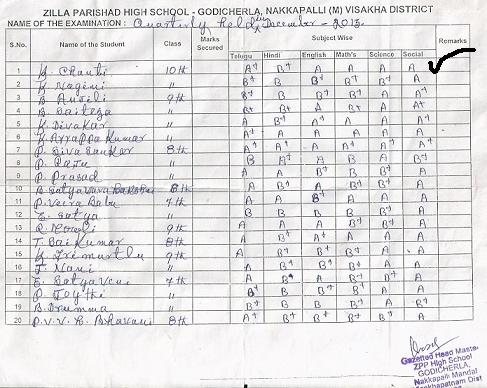 ZILLA PARISHAD HIGH SCHOOL - GODICHERLA, NAKKAPALLI (M) VISAKHA DISTRICT
NAME OF THE EXAMINATION : Quarterly held December - 2013.
S.No. Name of the Student Class Marks Secured Subject Wise Remarks
Telugu Hindi English Math's Science Social
1 K. Chanti 10th A+ B+ A A A A
2 K. Nageni " B+ B B+ B+ B+ A
3 9th B+ B B+ B+ A A+
4 B. Saiteja " B+ B+ A B+ A A+
5 K. Divakar " A B+ A A A A
6 K Arrappa Kumar " A A A A A A
7 P. Siva Sankar 8th A A A A A A+
8 P. Raju " B A+ A B A B+
9 P. Prasad " A A B+ B+ B A
10 8th A B+ A B+ B+ A
11 P. Veera Babu 7th A A B+ A A A
12 E. Satya " B B B B B+ A
13 R. Mowli 9th A A A B+ B+ A
14 T. Sai Kumar 8th A B+ A A A A
15 K. Trimurtlu 9th A B+ B+ B+ B+ A
16 T. Nani " A B+ A B+ A A
17 E. Satya Veni 7th A B+ A B+ B+ A
18 P. Joythi " B+ B B+ B+ B+ A
19 " A B+ B B+ A B+
20 P. V. V. L. Bhavani 8th A B+ B+ A A A
Gazetted Head Master
ZPP High School
GODICHERLA,
Nakkapalli Mandal
Visakhapatnam Dist